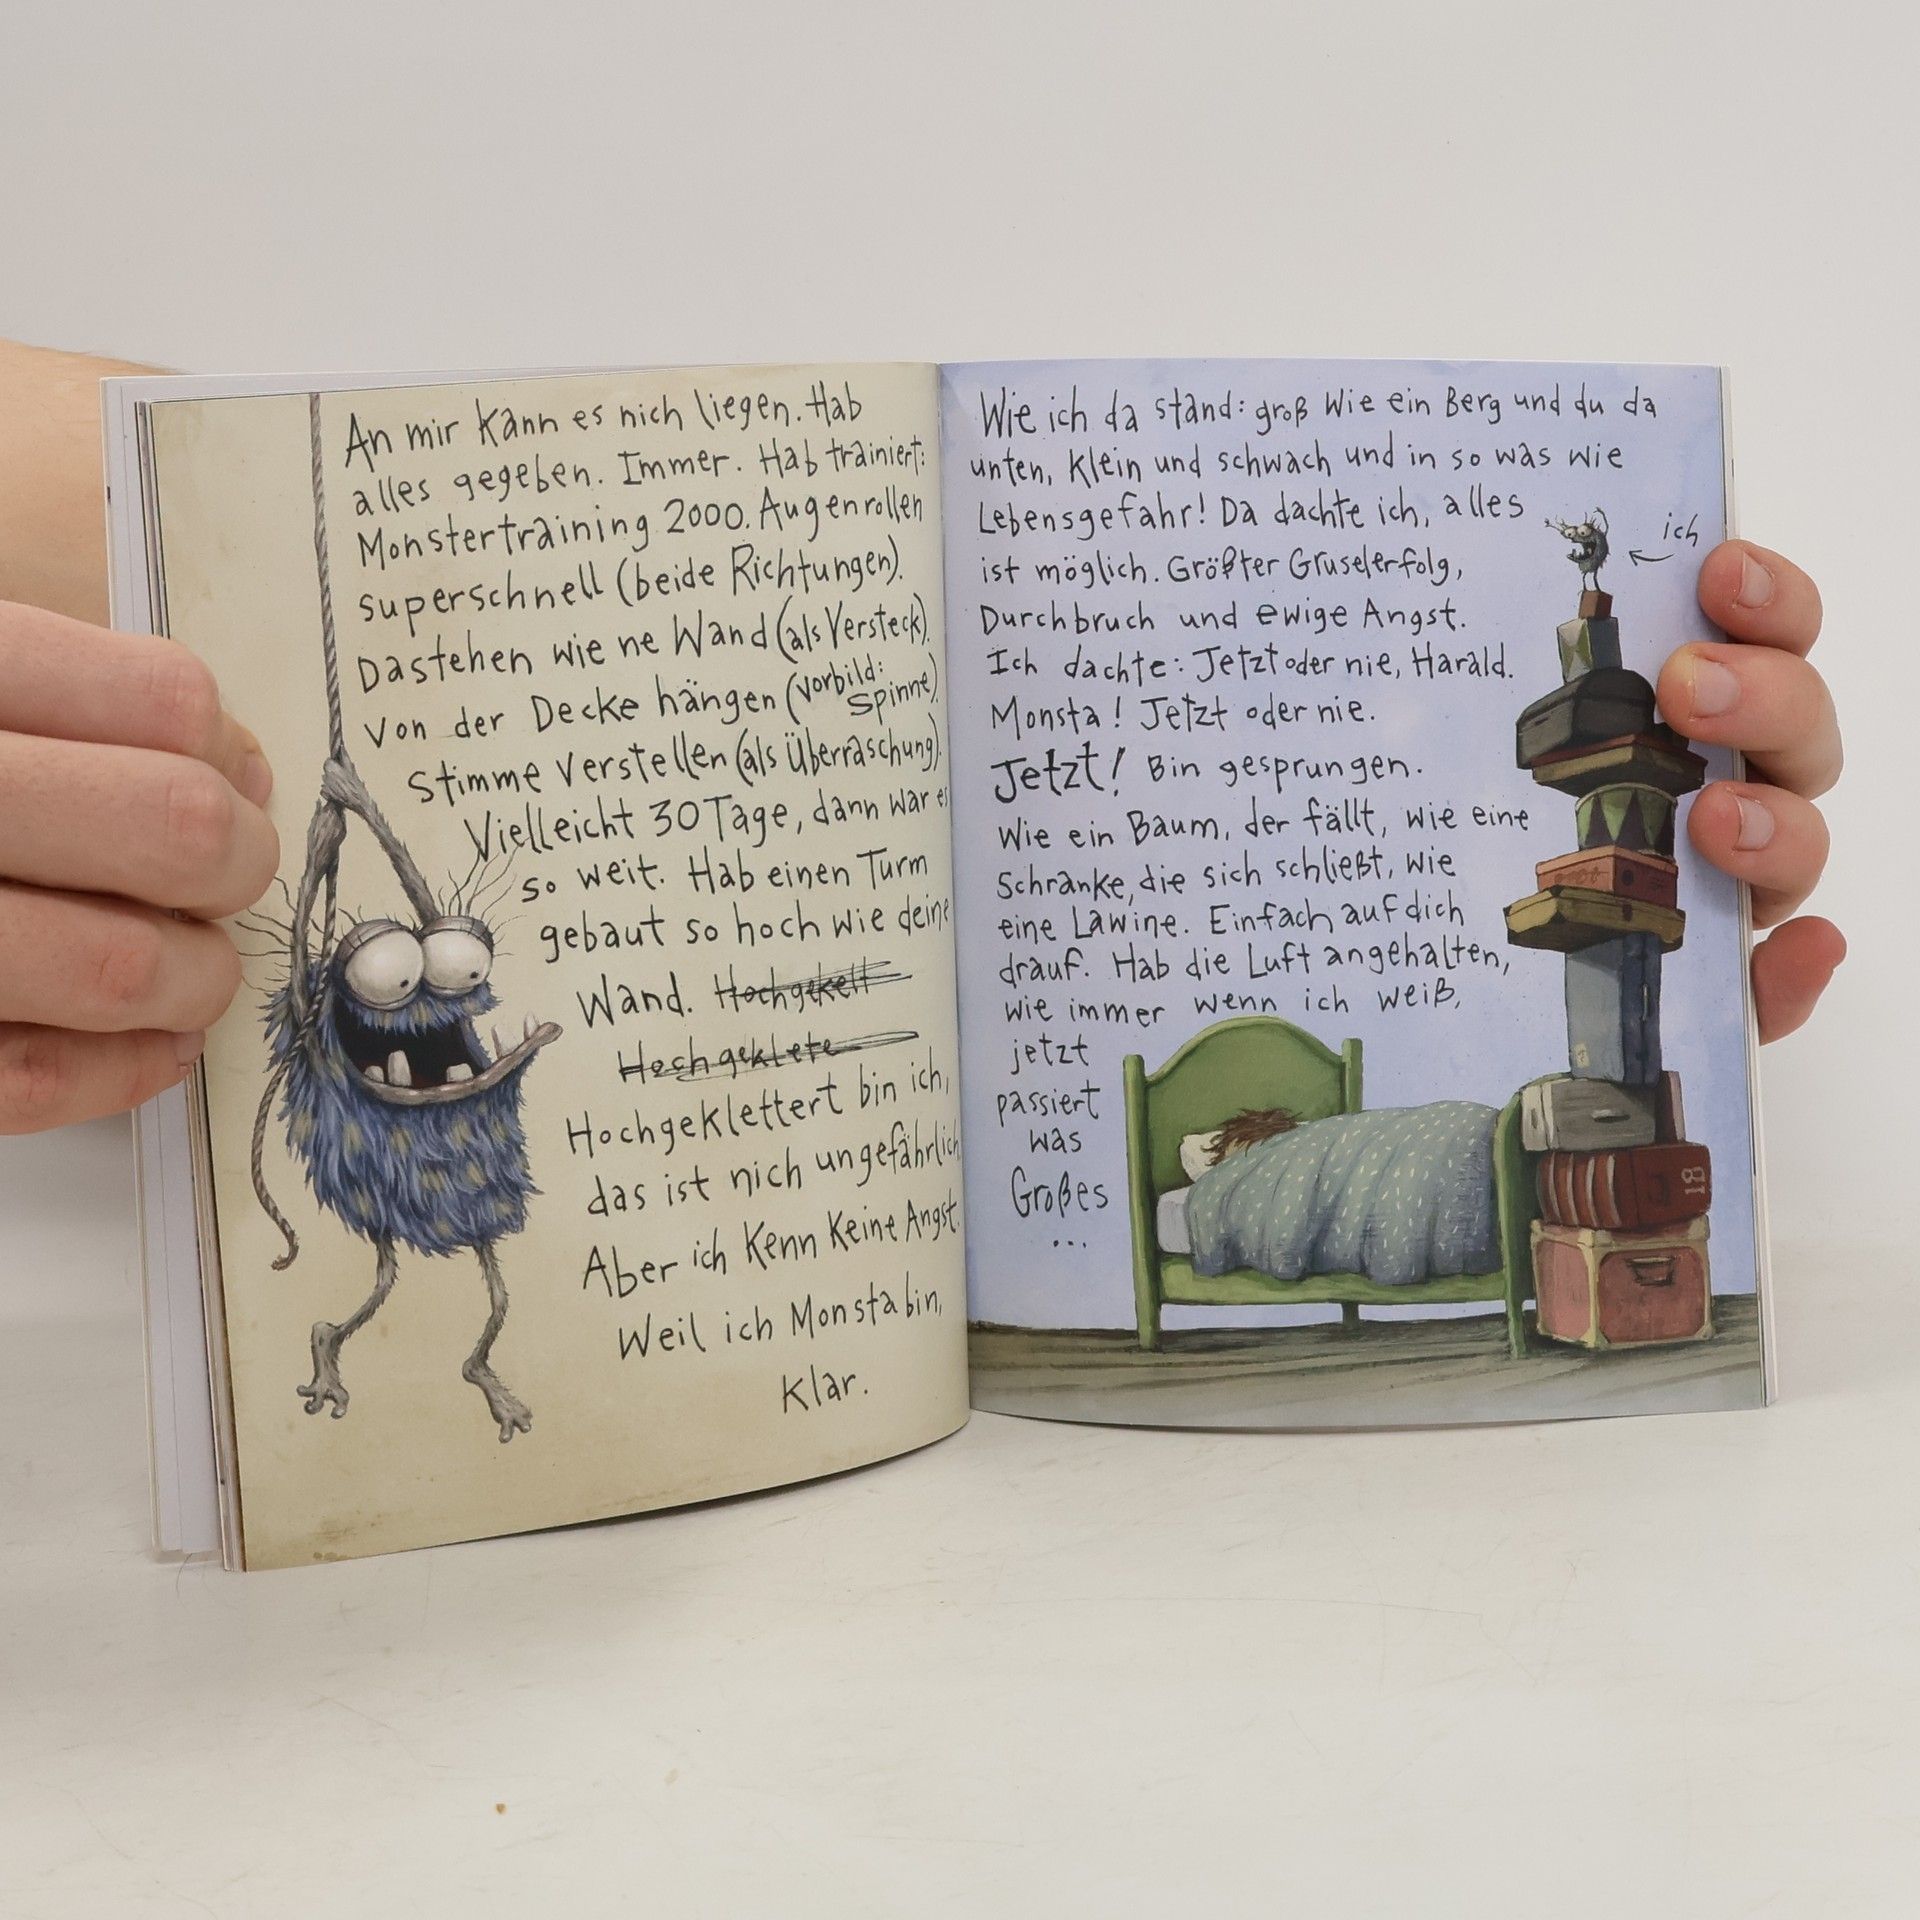 An mir kann es nich liegen. Hab
alles gegeben. Immer. Hab trainiert:
Monstertraining 2000. Augenrollen
superschnell (beide Richtungen).
Dastehen wie ne Wand (als Versteck).
Von der Decke hängen (Vorbild:
Spinne).
Stimme verstellen (als Überraschung).
Vielleicht 30 Tage, dann war es
so weit. Hab einen Turm
gebaut so hoch wie deine
Wand. Hochgekelt
Hochgeklete
Hochgeklettert bin ich,
das ist nich ungefährlich
Aber ich kenn keine Angst.
Weil ich Monsta bin,
klar.
Wie ich da stand: groß wie ein Berg und du da
unten, klein und schwach und in so was wie
Lebensgefahr! Da dachte ich, alles
ist möglich. Größter Gruselerfolg,
Durchbruch und ewige Angst.
Ich dachte: Jetzt oder nie, Harald.
Monsta! Jetzt oder nie.
Jetzt! Bin gesprungen.
Wie ein Baum, der fällt, wie eine
Schranke, die sich schließt, wie
eine Lawine. Einfach auf dich
drauf. Hab die Luft angehalten,
wie immer wenn ich weiß,
jetzt
passiert
was
Großes
...
ich
18